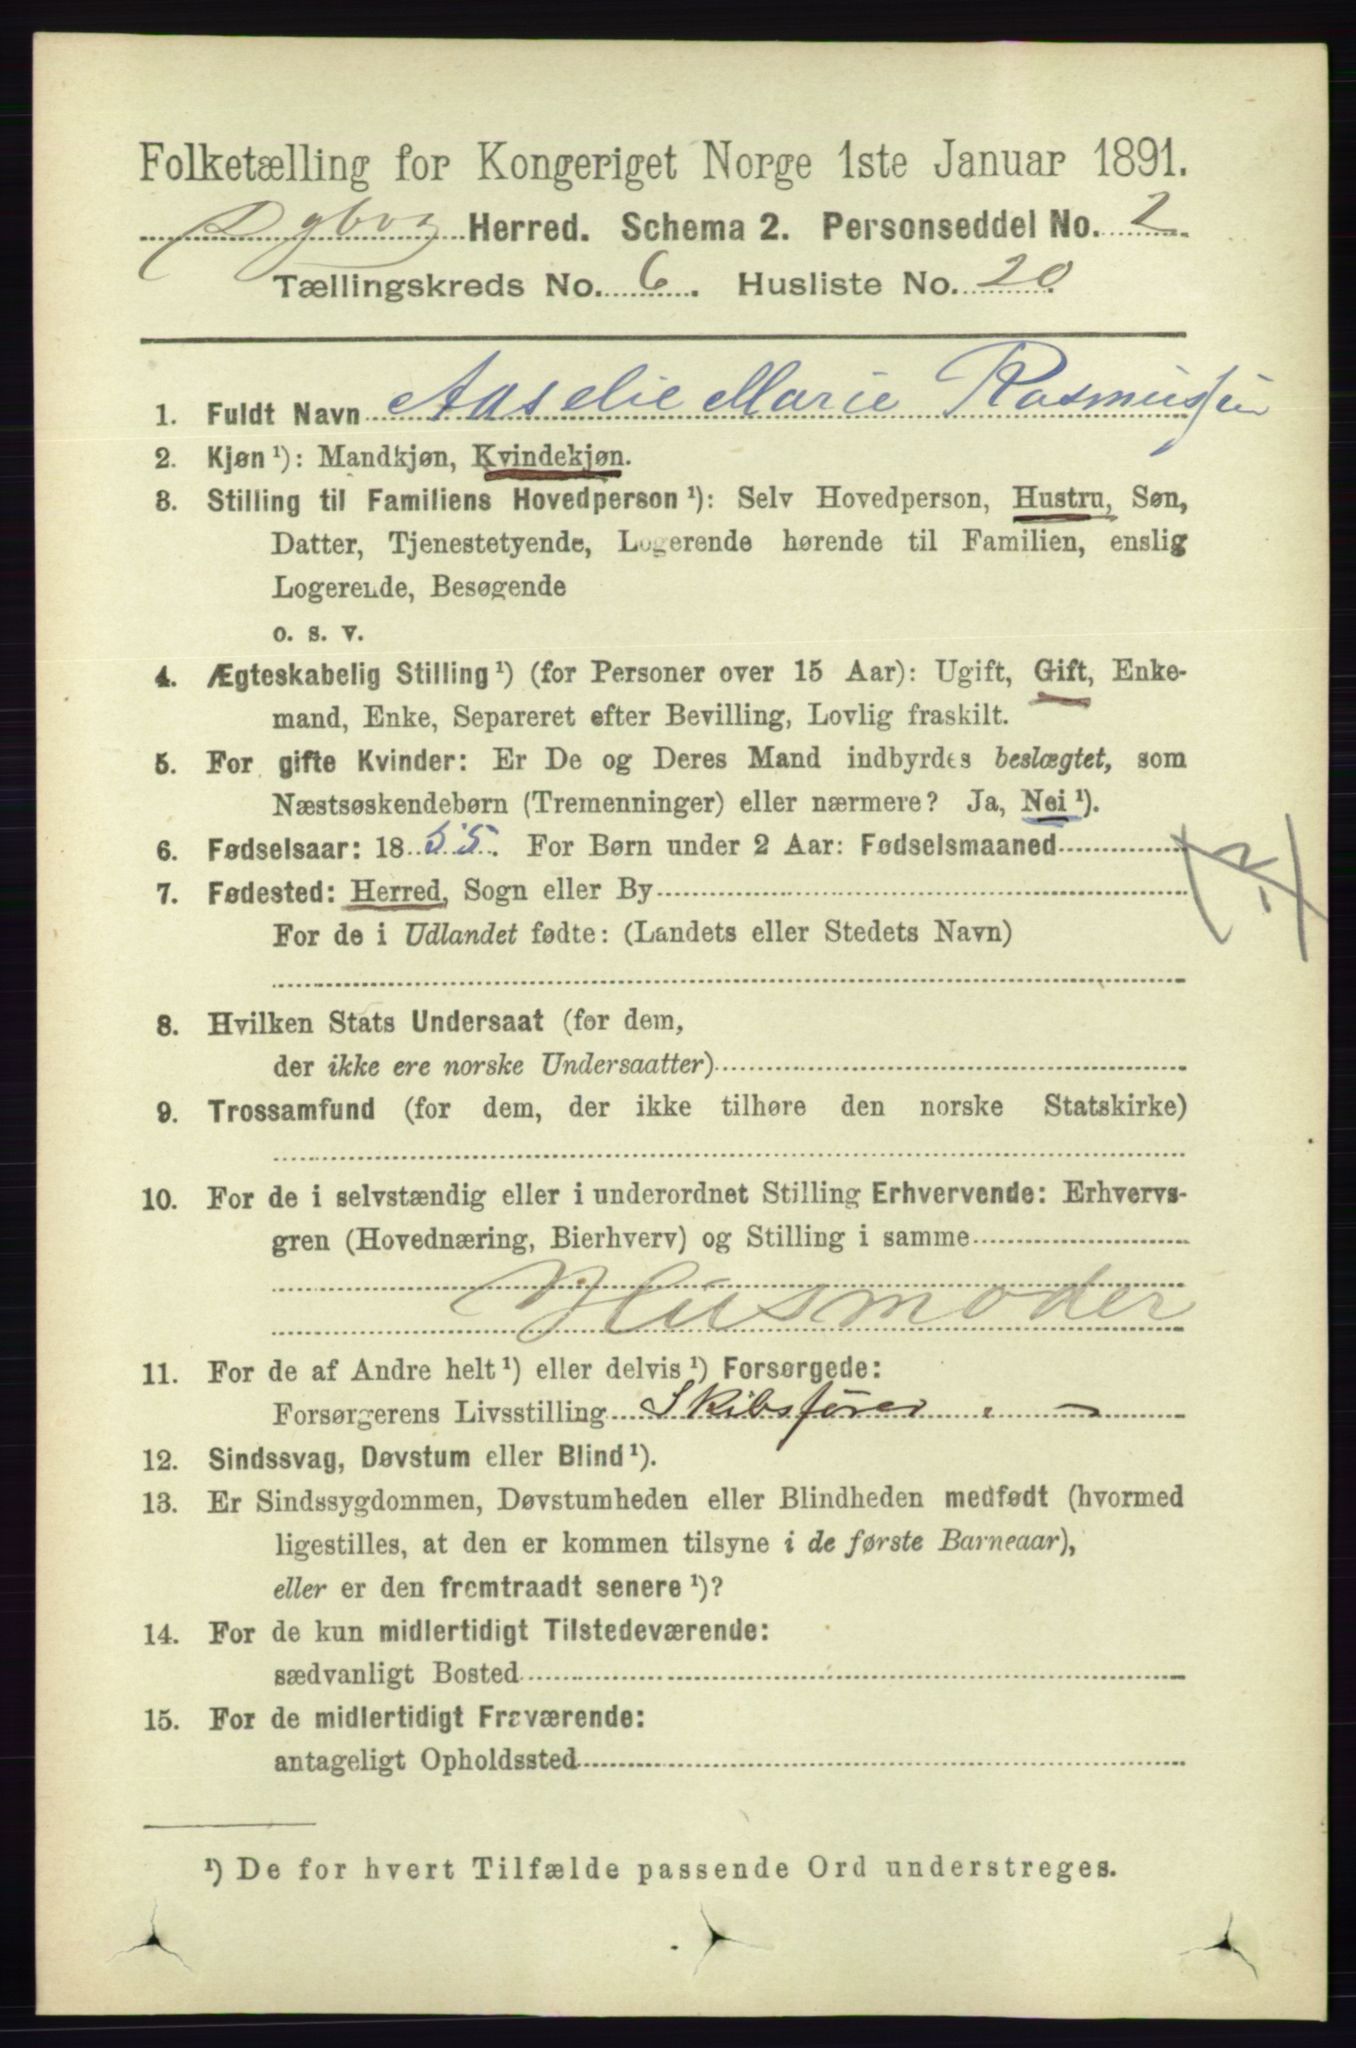 Folketælling for Kongeriget Norge 1ste Januar 1891.
Dybvog Herred. Schema 2. Personseddel No. 2
Tællingskreds No. 6. Husliste No. 20
1. Fuldt Navn Aaselie Marie Rasmussen
2. Kjøn ¹): Mandkjøn, Kvindekjøn.
3. Stilling til Familiens Hovedperson ¹): Selv Hovedperson, Hustru, Søn,
Datter, Tjenestetyende, Logerende hørende til Familien, enslig
Logerende, Besøgende
o. s. v.
4. Ægteskabelig Stilling ¹) (for Personer over 15 Aar): Ugift, Gift, Enke-
mand, Enke, Separeret efter Bevilling, Lovlig fraskilt.
5. For gifte Kvinder: Er De og Deres Mand indbyrdes beslægtet, som
Næstsøskendebørn (Tremenninger) eller nærmere? Ja, Nei ¹).
6. Fødselsaar: 1855. For Børn under 2 Aar: Fødselsmaaned
7. Fødested: Herred, Sogn eller By
For de i Udlandet fødte: (Landets eller Stedets Navn)
8. Hvilken Stats Undersaat (for dem,
der ikke ere norske Undersaatter)
9. Trossamfund (for dem, der ikke tilhøre den norske Statskirke)
10. For de i selvstændig eller i underordnet Stilling Erhvervende: Erhvervs-
gren (Hovednæring, Bierhverv) og Stilling i samme
Husmoder
11. For de af Andre helt ¹) eller delvis ¹) Forsørgede:
Forsørgerens Livsstilling Skibsfører
12. Sindssvag, Døvstum eller Blind ¹).
13. Er Sindssygdommen, Døvstumheden eller Blindheden medfødt (hvormed
ligestilles, at den er kommen tilsyne i de første Barneaar),
eller er den fremtraadt senere ¹)?
14. For de kun midlertidigt Tilstedeværende:
sædvanligt Bosted
15. For de midlertidigt Fraværende:
antageligt Opholdssted
¹) De for hvert Tilfælde passende Ord understreges.